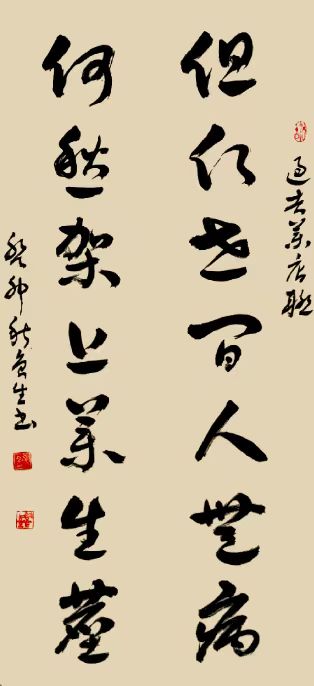 過去藥店聯
但願世間人無病
何愁架上藥生塵
癸卯秋生书